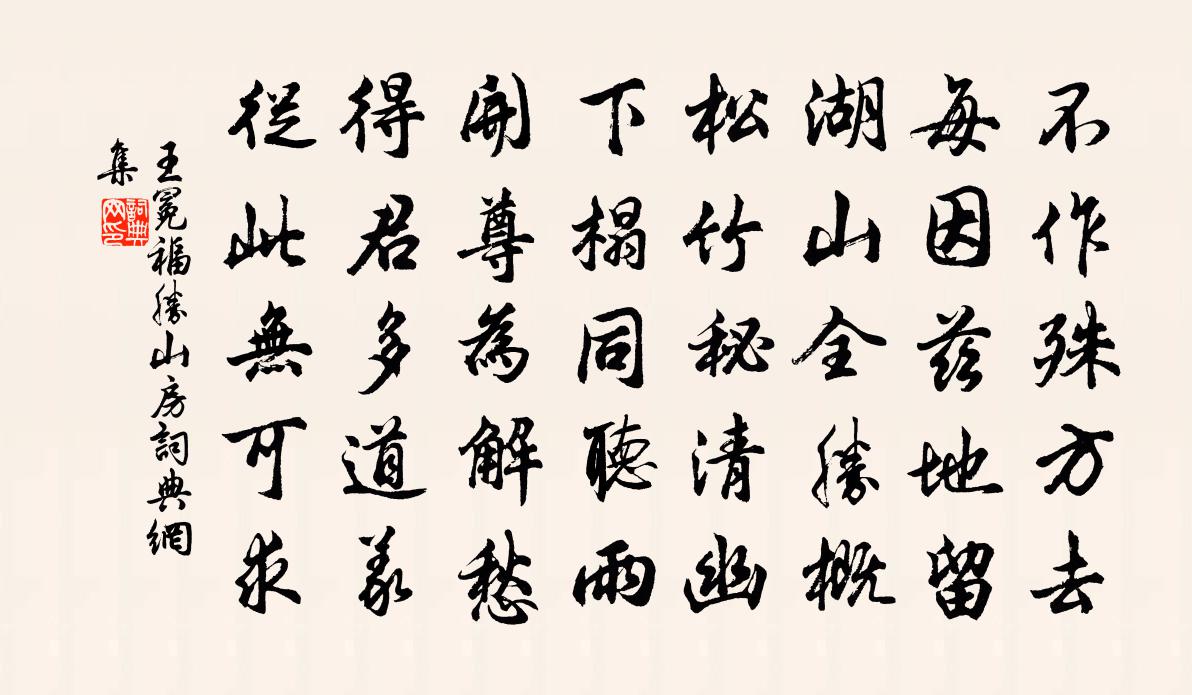 不作殊方去
每因茲地留
湖山全勝概
松竹秘清幽
下榻同聽雨
開尊為解愁
得君多道義
從此無可求
王冕福勝山房詞典網
集
詞典
网印